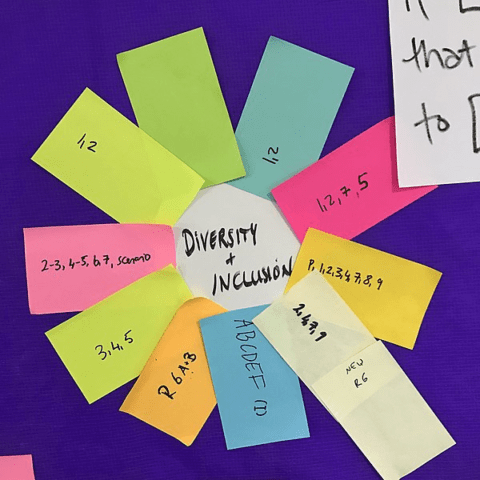 DIVERSITY
+
INCLUSIÓN
1,2
1,2
1,2,7,5
P, 1,2,3,4,7,8,9
2,4,7,9
NEW
R6
ABCDEF
R 6 A+B
3,4,5
2-3, 4-5, 6,7, scenario
that
to [